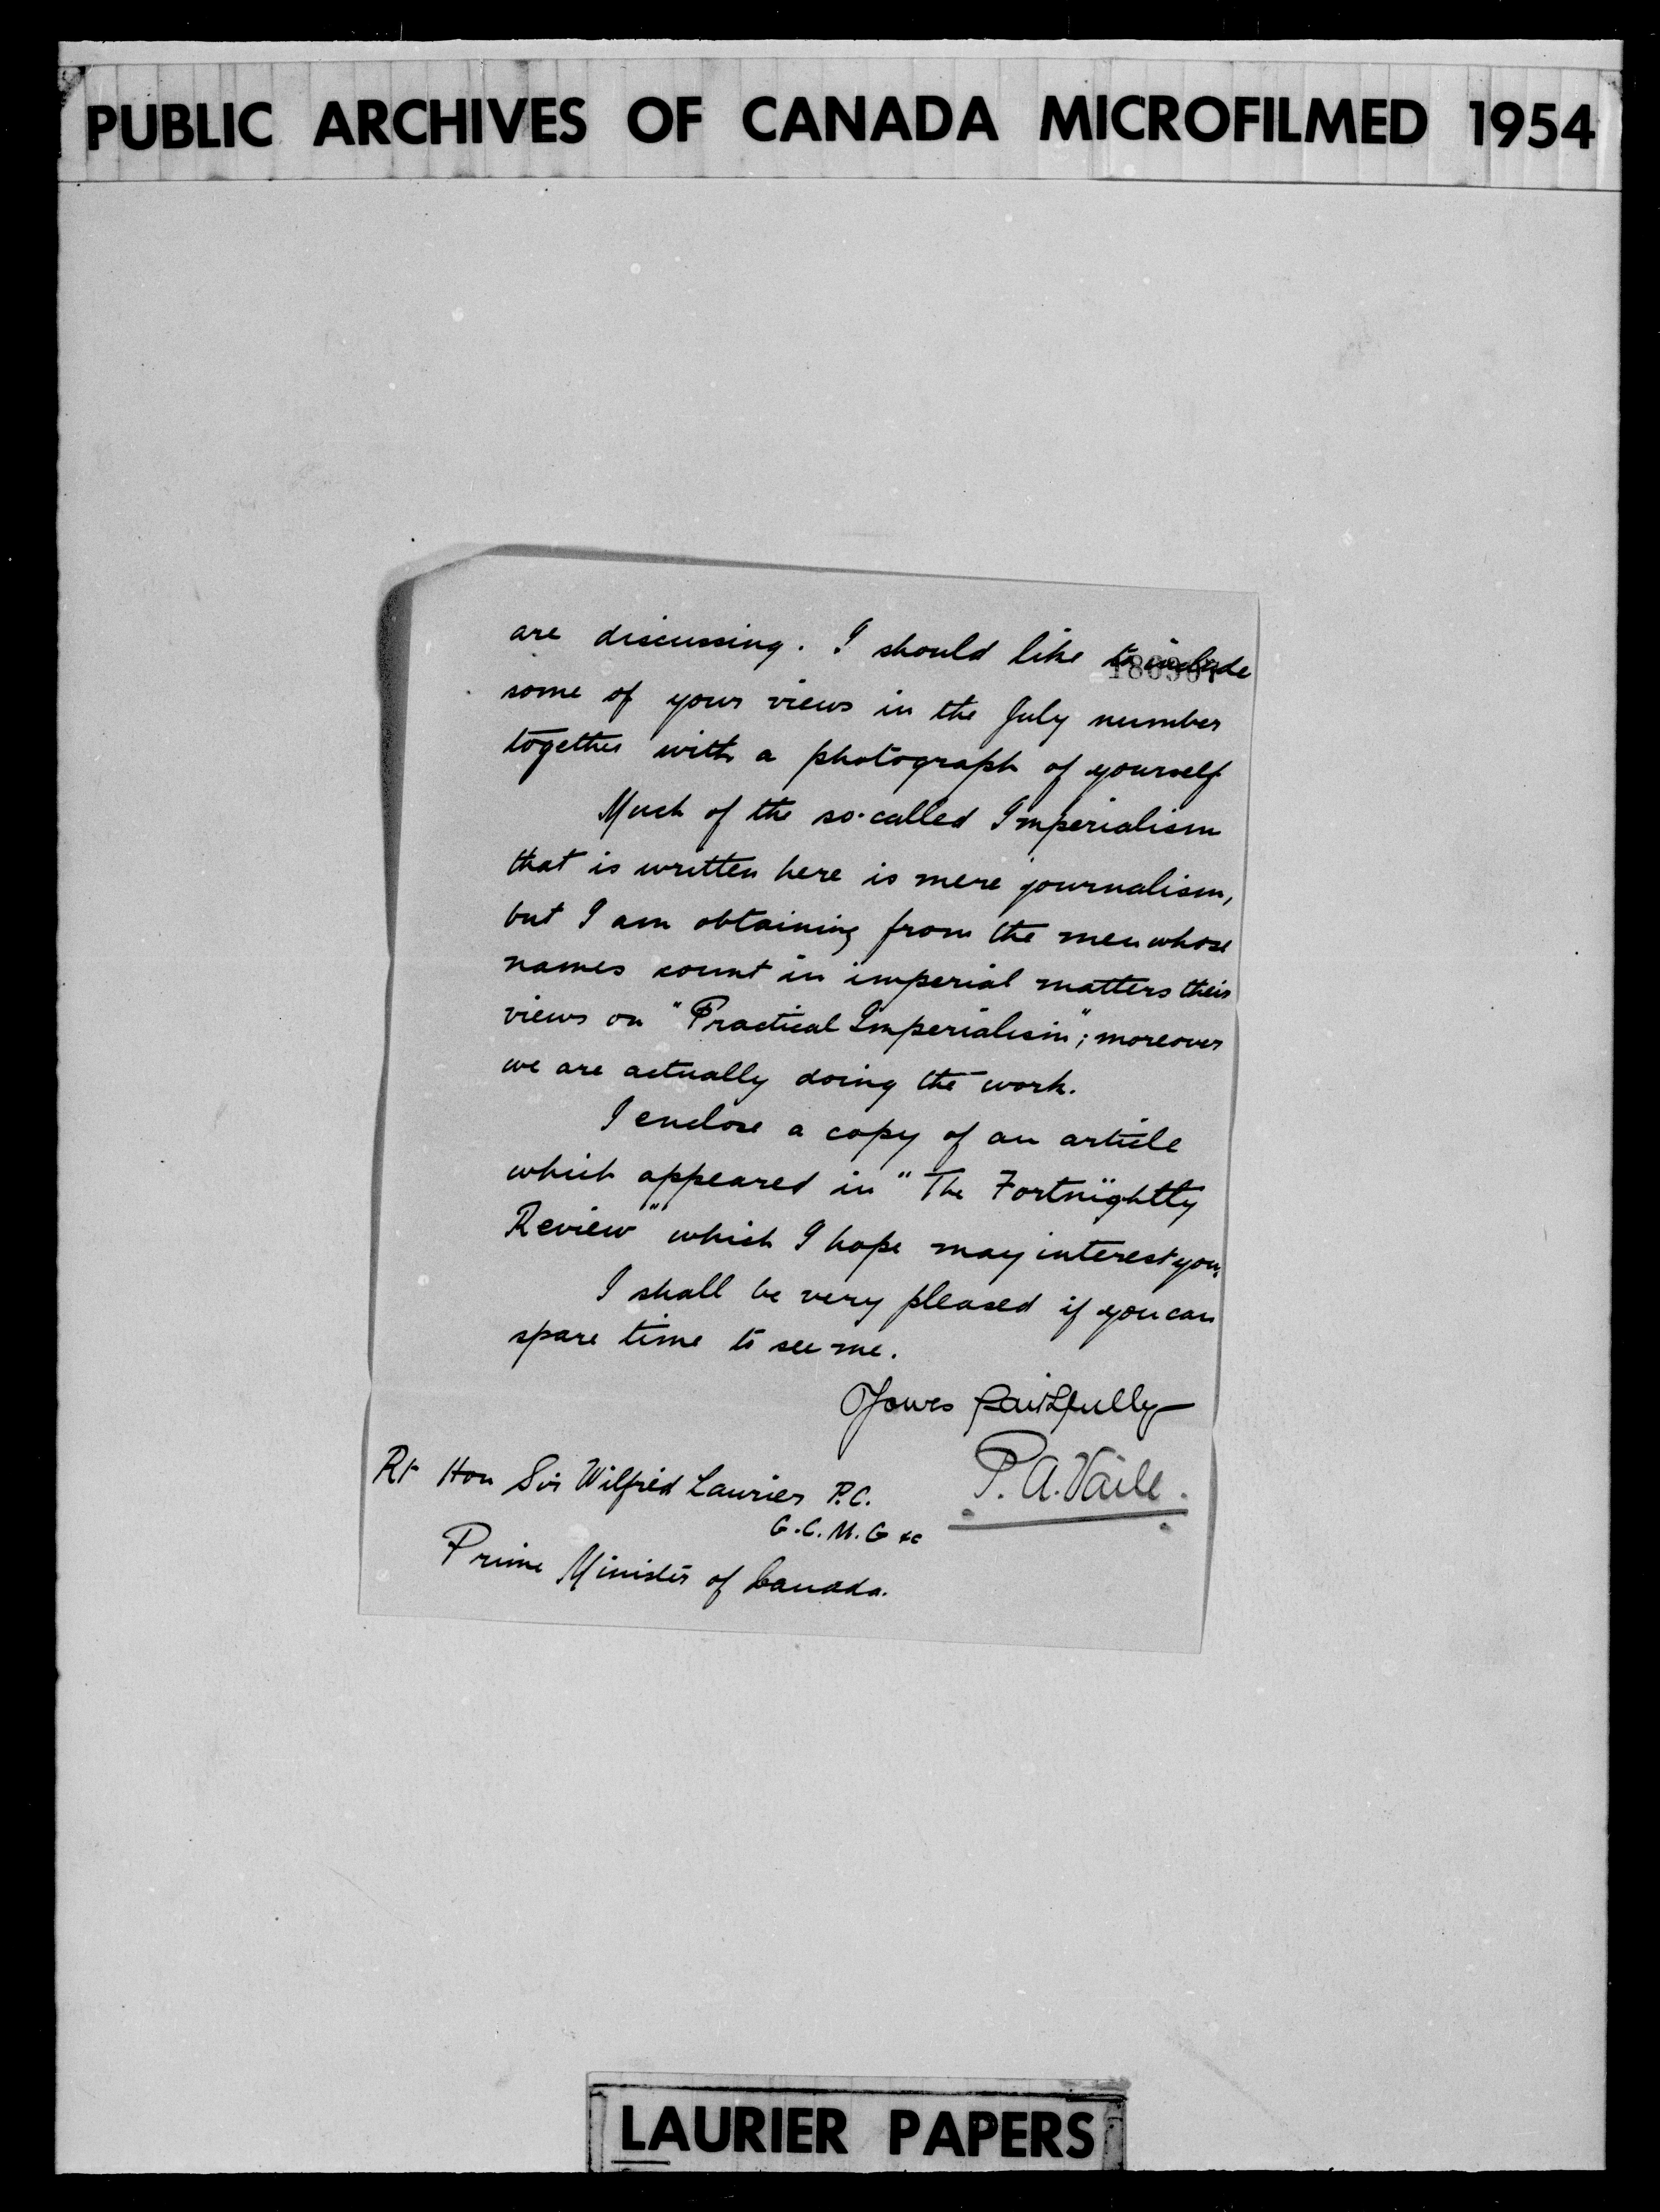 PUBLIC ARCHIVES OF CANADA MICROFILMED 1954
are discussing. I should like to include
some of your views in the July number
together with a photograph of yourself
Much of the so-called Imperialism
that is written here is mere journalism,
but I am obtaining from the men whose
names count in imperial matters their
views on "Practical Imperialism"; moreover
we are actually doing the work.
I enclose a copy of an article
which appeared in "The Fortnightly
Review" which I hope may interest you.
I shall be very pleased if you can
spare time to see me.
Yours faithfully
P. A. Vaile.
Rt Hon Sir Wilfrid Laurier P.C.
G.C.M.G &c
Prime Minister of Canada.
LAURIER PAPERS